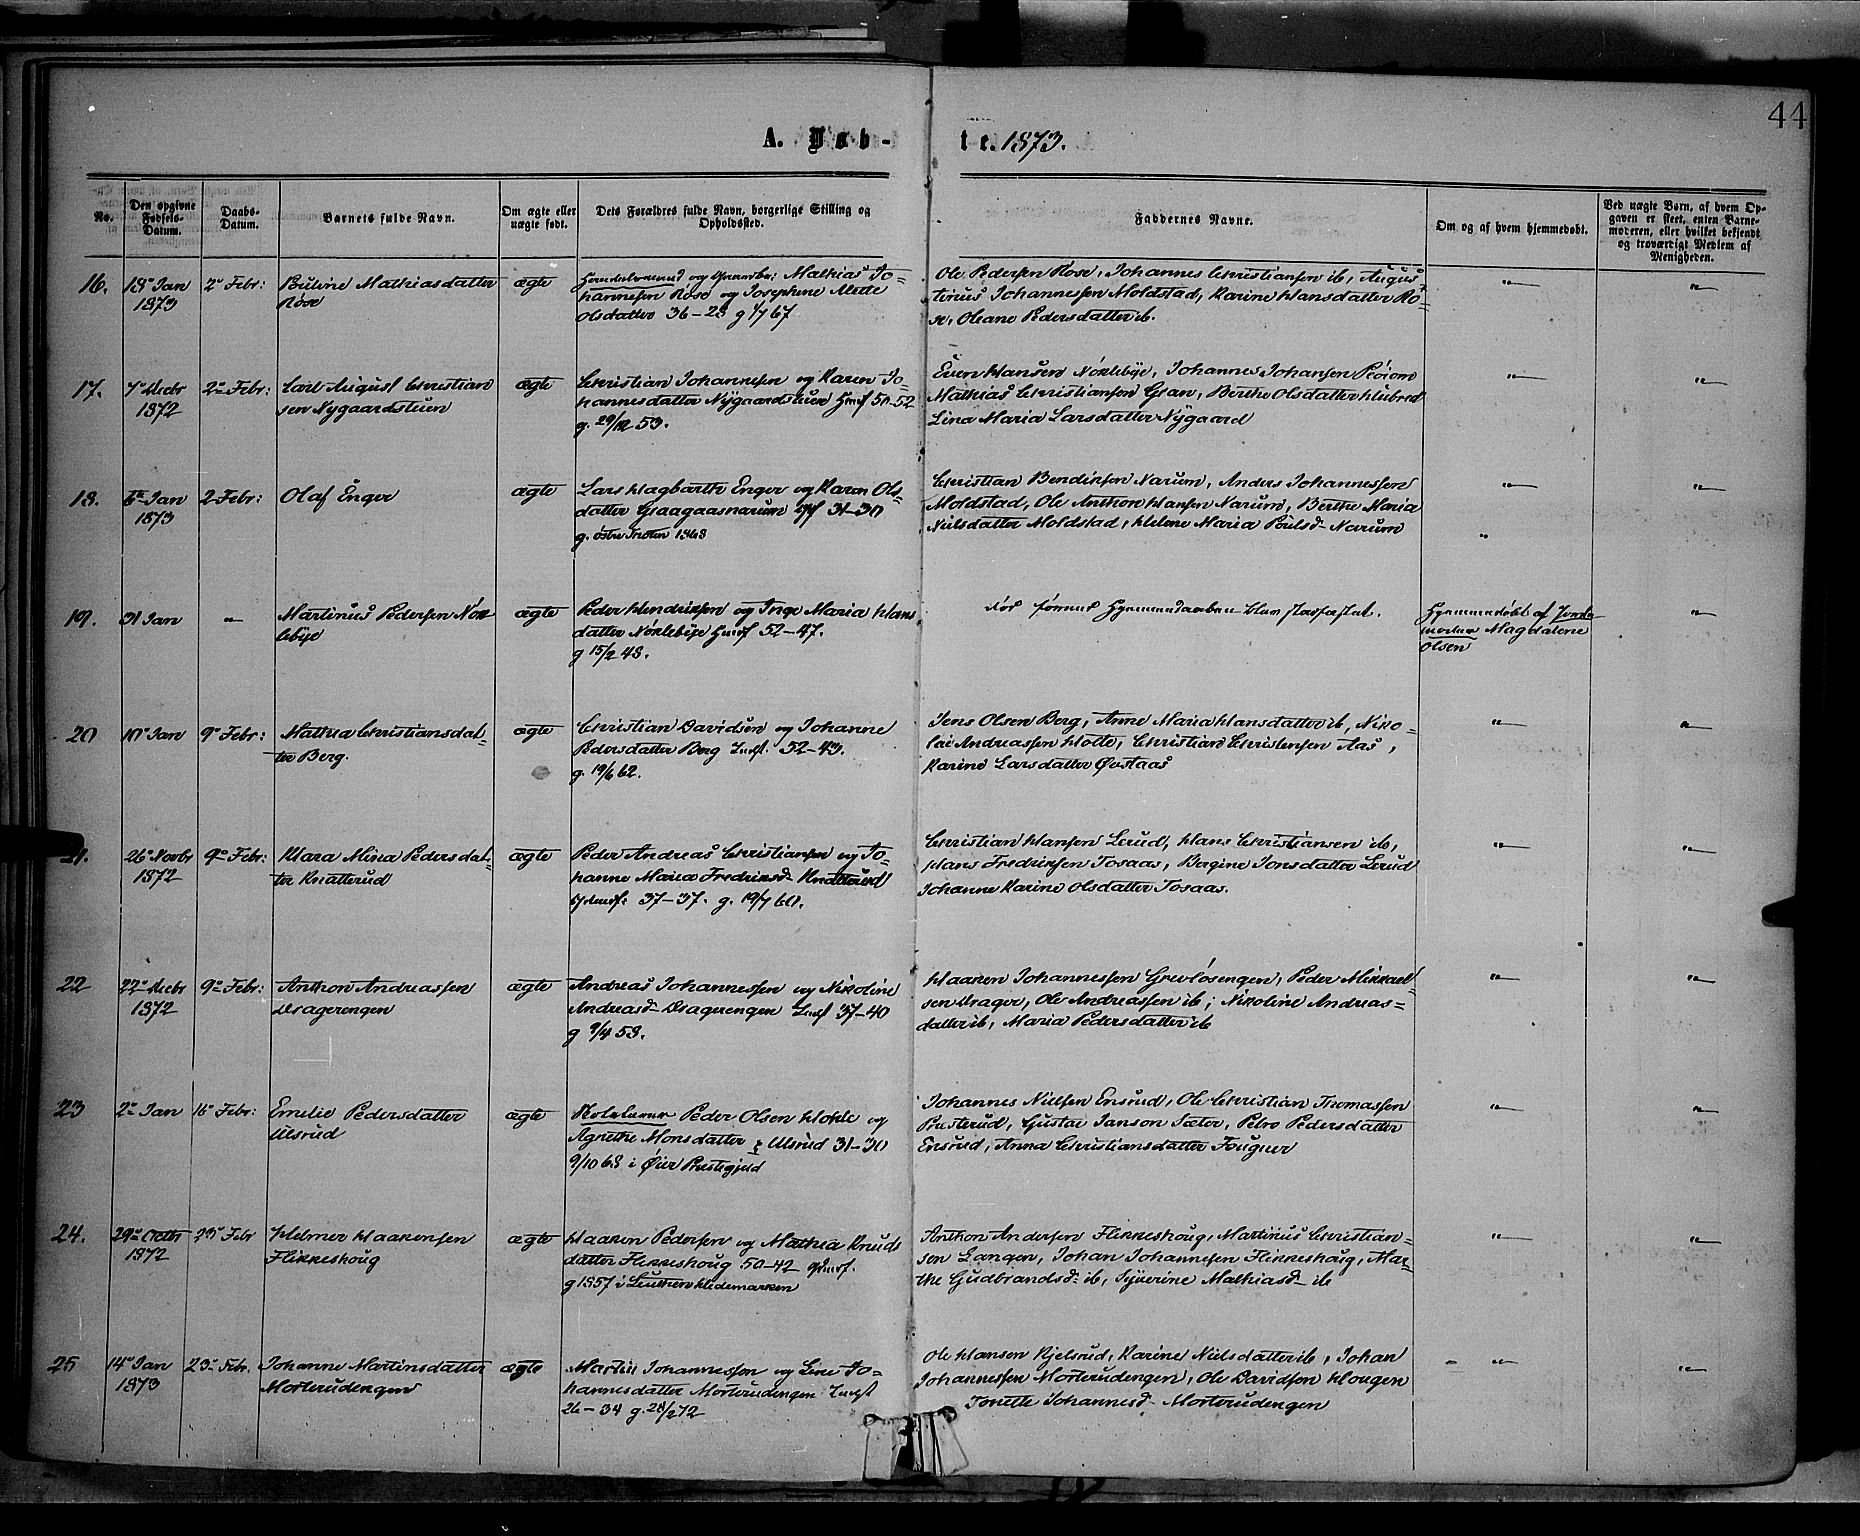 44
A. Døb-te. 1873.
No.
Den opgivne Fødsels-Datum.
Daabs-Datum.
Barnets fulde Navn.
Om ægte eller uægte født.
Dets Forældres fulde Navn, borgerlige Stilling og Opholdssted.
Faddernes Navne.
Om og af hvem hjemmedøbt.
Ved uægte Børn, af hvem Opgaven er skeet, enten Barnemoderen, eller hvilket bekjendt og troværdigt Medlem af Menigheden.
16. 18de Jan 1873 2 Febr: Mathiasdatter Rose ægte
og Mathias Jo-
hannesen Rose og Josephine Mette
Olsdatter 36-28 g 67
Ole Pedersen Rose, Johannes Christiansen ib, Augus-
tinus Johannessen Moldstad, Karine Hansdatter Ro-
se, Oleane Pedersdatter ib.
17. 7 Decbr 1872 2 Febr: Carl August Christian
sen Nygaardstuen ægte
Christian Johannesen og Karen Jo-
hannesdatter Nygaardstuen Husf 50-52
g. 29/12 53.
Even Hansen Nøklebye, Johannes Johansen
Mathias Christiansen Gran, Berthe Olsdatter
Lina Maria Larsdatter Nygaard
18. 6 Jan 1873 2 Febr: Olaf Enger ægte
Lars Hagbarth Enger og Karen Ols-
datter Graagaasnarum 31-30
g. østre Thoten 1868
Christian Bendiksen Narum, Anders Johannessen
Moldstad, Ole Anthon Hansen Narum, Berthe Maria
Nielsdatter Moldstad, Helene Maria Pouls d. Narum
19. 31 Jan " Martinus Pedersen Nøk
lebye ægte
Peder Hendriksen og Inge Maria Hans
datter Nøklebye Husf 52-47.
g 15/2 48.
Død førend Hjemmedaaben blev stadfæstet.
Hjemmedøbt af Jorde
moderen Magdalene
Olsen
20 10 Jan 9 Febr: Mathea Christiansdat-
ter Berg. ægte
Christian Davidsen og Johanne
Pedersdatter Berg Indst. 52-43.
g. 19/6 62.
Jens Olsen Berg, Anne Maria Hansdatter ib, Niko-
lai Andreassen Holte, Christian Christensen Aas,
Karine Larsdatter Øvstaas
21. 26 Novbr 1872 9 Febr: Klara Mina Pedersdat-
ter Knatterud ægte
Peder Andreas Christiansen og Jo-
hanne Maria Fredriksd. Knatterud
37-37. g. 19/7 60.
Christian Hansen Lerud, Hans Christiansen ib,
Hans Fredriksen Tosaas, Bergine Jonsdatter Lerud
Johanne Karine Olsdatter Tosaas.
22 22 Decbr 1872 9 Febr: Anthon Andreassen
Dragerengen ægte
Andreas Johannessen og Nikoline
Andreasd. Dragerengen Indst 37-40
g 9/4 58.
Haaken Johannessen Grevlösengen, Peder Mikkael
sen Drager, Ole Andreassen ib, Nikoline Andreas-
datter ib, Maria Pedersdatter ib
23 2 Jan 16 Febr: Emelie Pedersdatter
Ulsrud ægte
Peder Olsen Holte og
Agnethe Monsdatter Ulsrud 31-30
9/10 68 i Øier Præstegjeld
Johannes Nielsen Ensrud, Ole Christian Thomassen
Prusterud, Gustav Janson Sæter, Petro Pedersdatter
Ensrud, Anna Christiansdatter Fougner
24. 29 Octbr 1872 23 Febr Helmer Haakensen
Flikkeshoug ægte
Haaken Pedersen og Mathea Knuds
datter Flikkeshoug 50-42 Husf.
g 1857 i Hedemarken
Anthon Andersen Flikkeshoug, Martinus Christian-
sen Langen, Johan Johannesen Flikkeshoug, Mar-
the Gudbrandsd. ib, Syverine Mathiasd. ib
25 14 Jan 1873 23 Febr. Johanne Martinsdatter
Morterudengen ægte
Martin Johannessen og Lene Jo-
hannesdatter Morterudengen Indst
26-34 g. 28/2 72
Ole Hansen Kjelsrud, Karine Nielsdatter ib, Johan
Johannessen Morterudengen, Ole Davidsen Hougen
Tonette Johannesd. Morterudengen